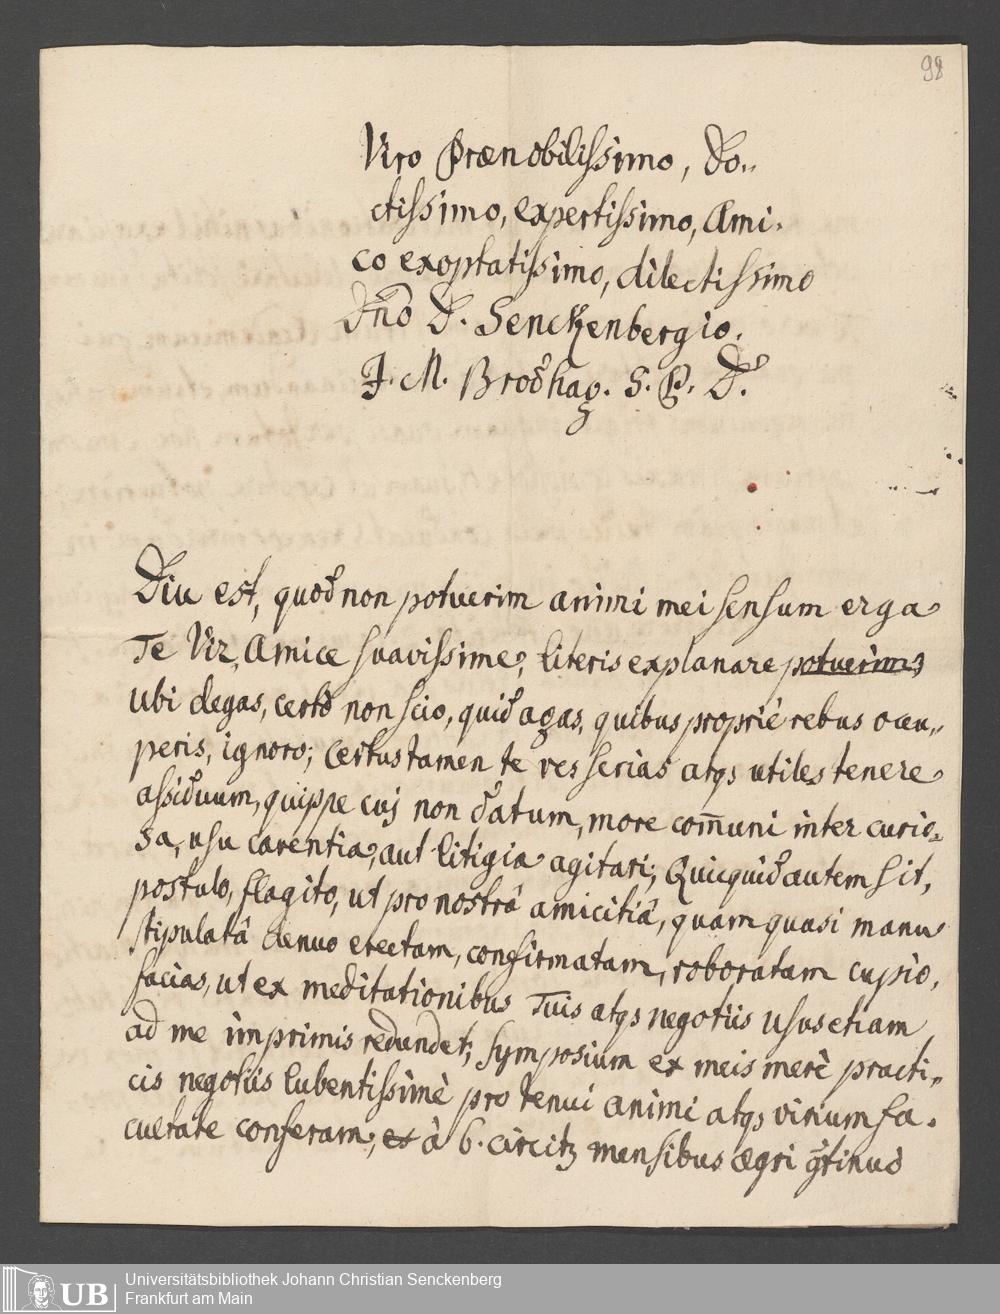 98
Viro Prænobilissimo, Do„
ctissimo, expertissimo, Ami„
co exoptatissimo, dilectissimo
Dno D. Senckenbergio.
J. M. Brodhag. S. P. D.
Diu est, quod non potuerim animi mei sensum erga
Te Vir, Amice suavissime, literis explanare potuerim;
Ubi degas, certò non scio, quid agas, quibus propriè rebus occu„
peris, ignoro; Certus tamen te res serias atqs utiles tenere
assiduum, quippe cuj non datum, more com̄uni inter curio„
sa, usu carentia, aut litigia agitari; Quicquid autem sit,
postulo, flagito, ut pro nostrâ amicitiâ, quam quasi manu
stipulatâ denuo erectam, confirmatam, roboratam cupio,
facias, ut ex meditationibus Tuis atqs negotiis usus etiam
ad me imprimis redundet; symposium ex meis merè practi„
cis negotiis lubentissimè pro tenui animi atqs virium fa„
cultate conferam; à 6. circit mensibus ægri
UB
Universitätsbibliothek Johann Christian Senckenberg
Frankfurt am Main